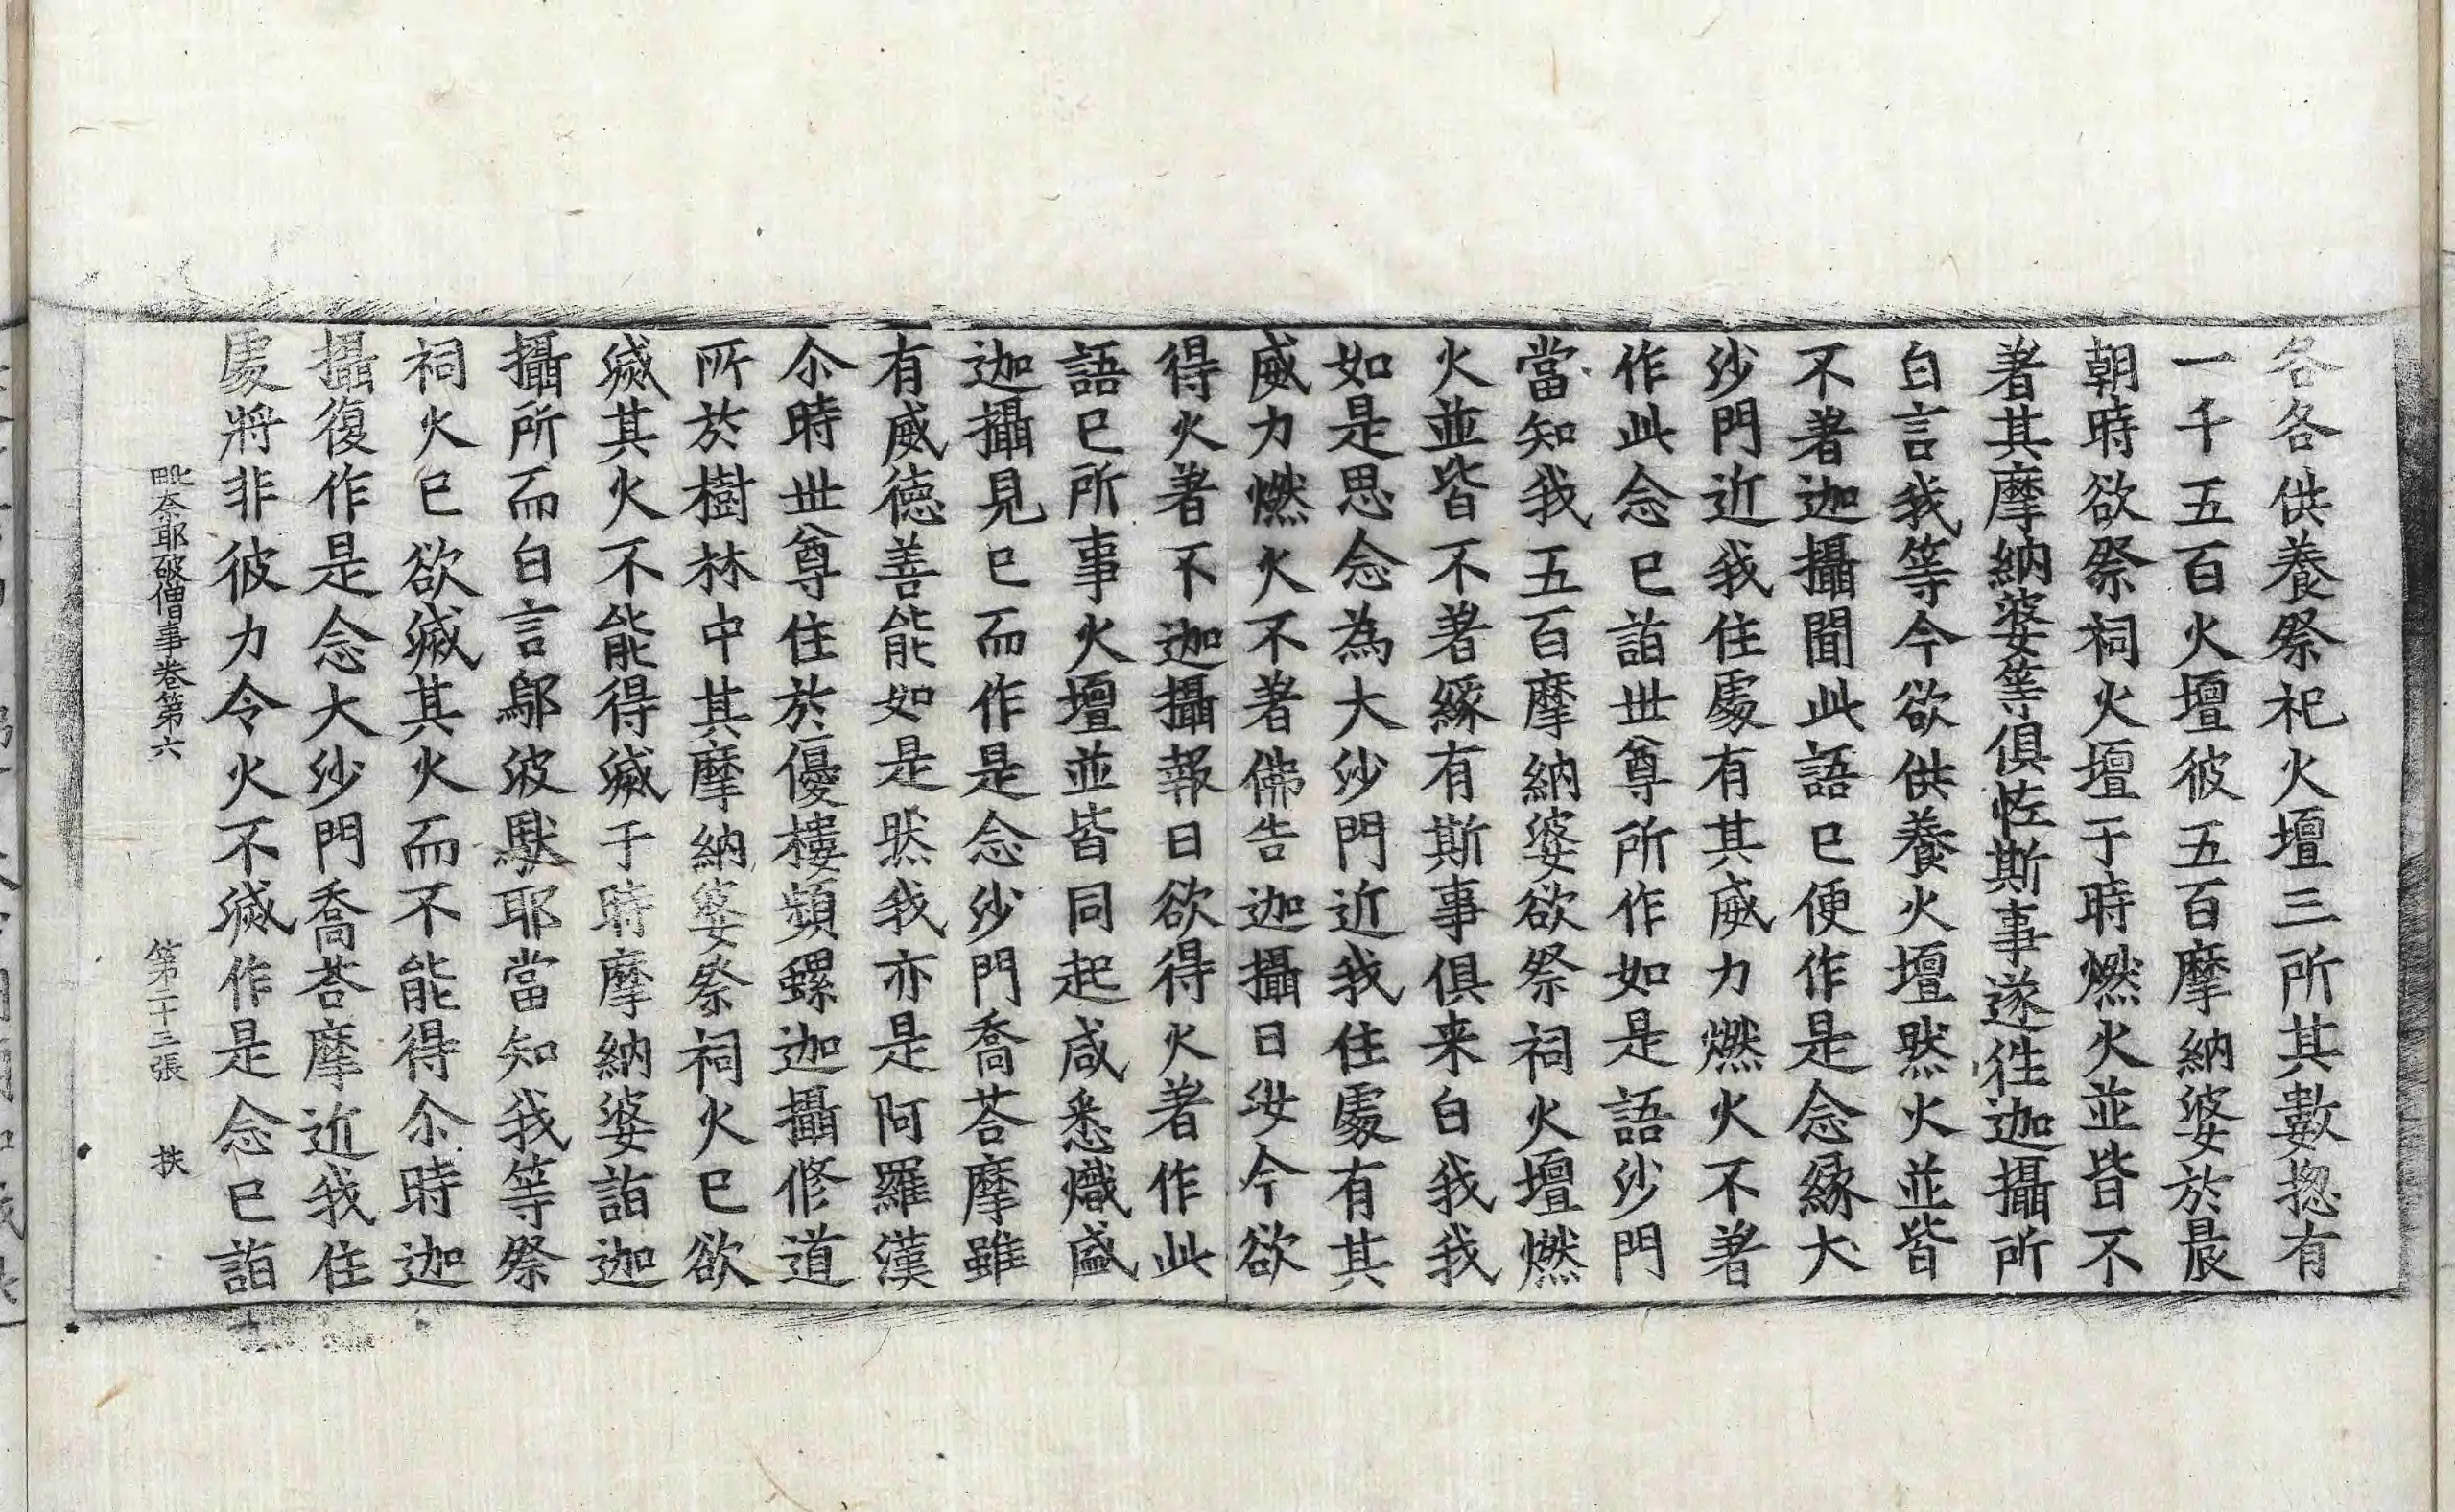 各各供養祭祀火壇三所其數揔有
一千五百火壇彼五百摩納婆於晨
朝時欲祭祠火壇于時燃火並皆不
著其摩納婆等俱怪斯事遂徃迦攝所
白言我等今欲供養火壇然火並皆
不著迦攝聞此語已便作是念緣大
沙門近我住處有其威力燃火不著
作此念已詣世尊所作如是語沙門
當知我五百摩納婆欲祭祠火壇燃
火並皆不著緣有斯事俱来白我我
如是思念為大沙門近我住處有其
威力燃火不著佛告迦攝曰汝今欲
得火著不迦攝報曰欲得火著作此
語已所事火壇並皆同起咸悉熾盛
迦攝見已而作是念沙門喬荅摩雖
有威德善能如是然我亦是阿羅漢
尒時世尊住於優樓頻螺迦攝修道
所於樹林中其摩納婆祭祠火已欲
滅其火不能得滅于時摩納婆詣迦
攝所而白言鄔波馱耶當知我等祭
祠火已欲滅其火而不能得尒時迦
攝復作是念大沙門喬荅摩近我住
處將非彼力令火不滅作是念已詣
毗奈耶破僧事卷第六 第二十三張 扶